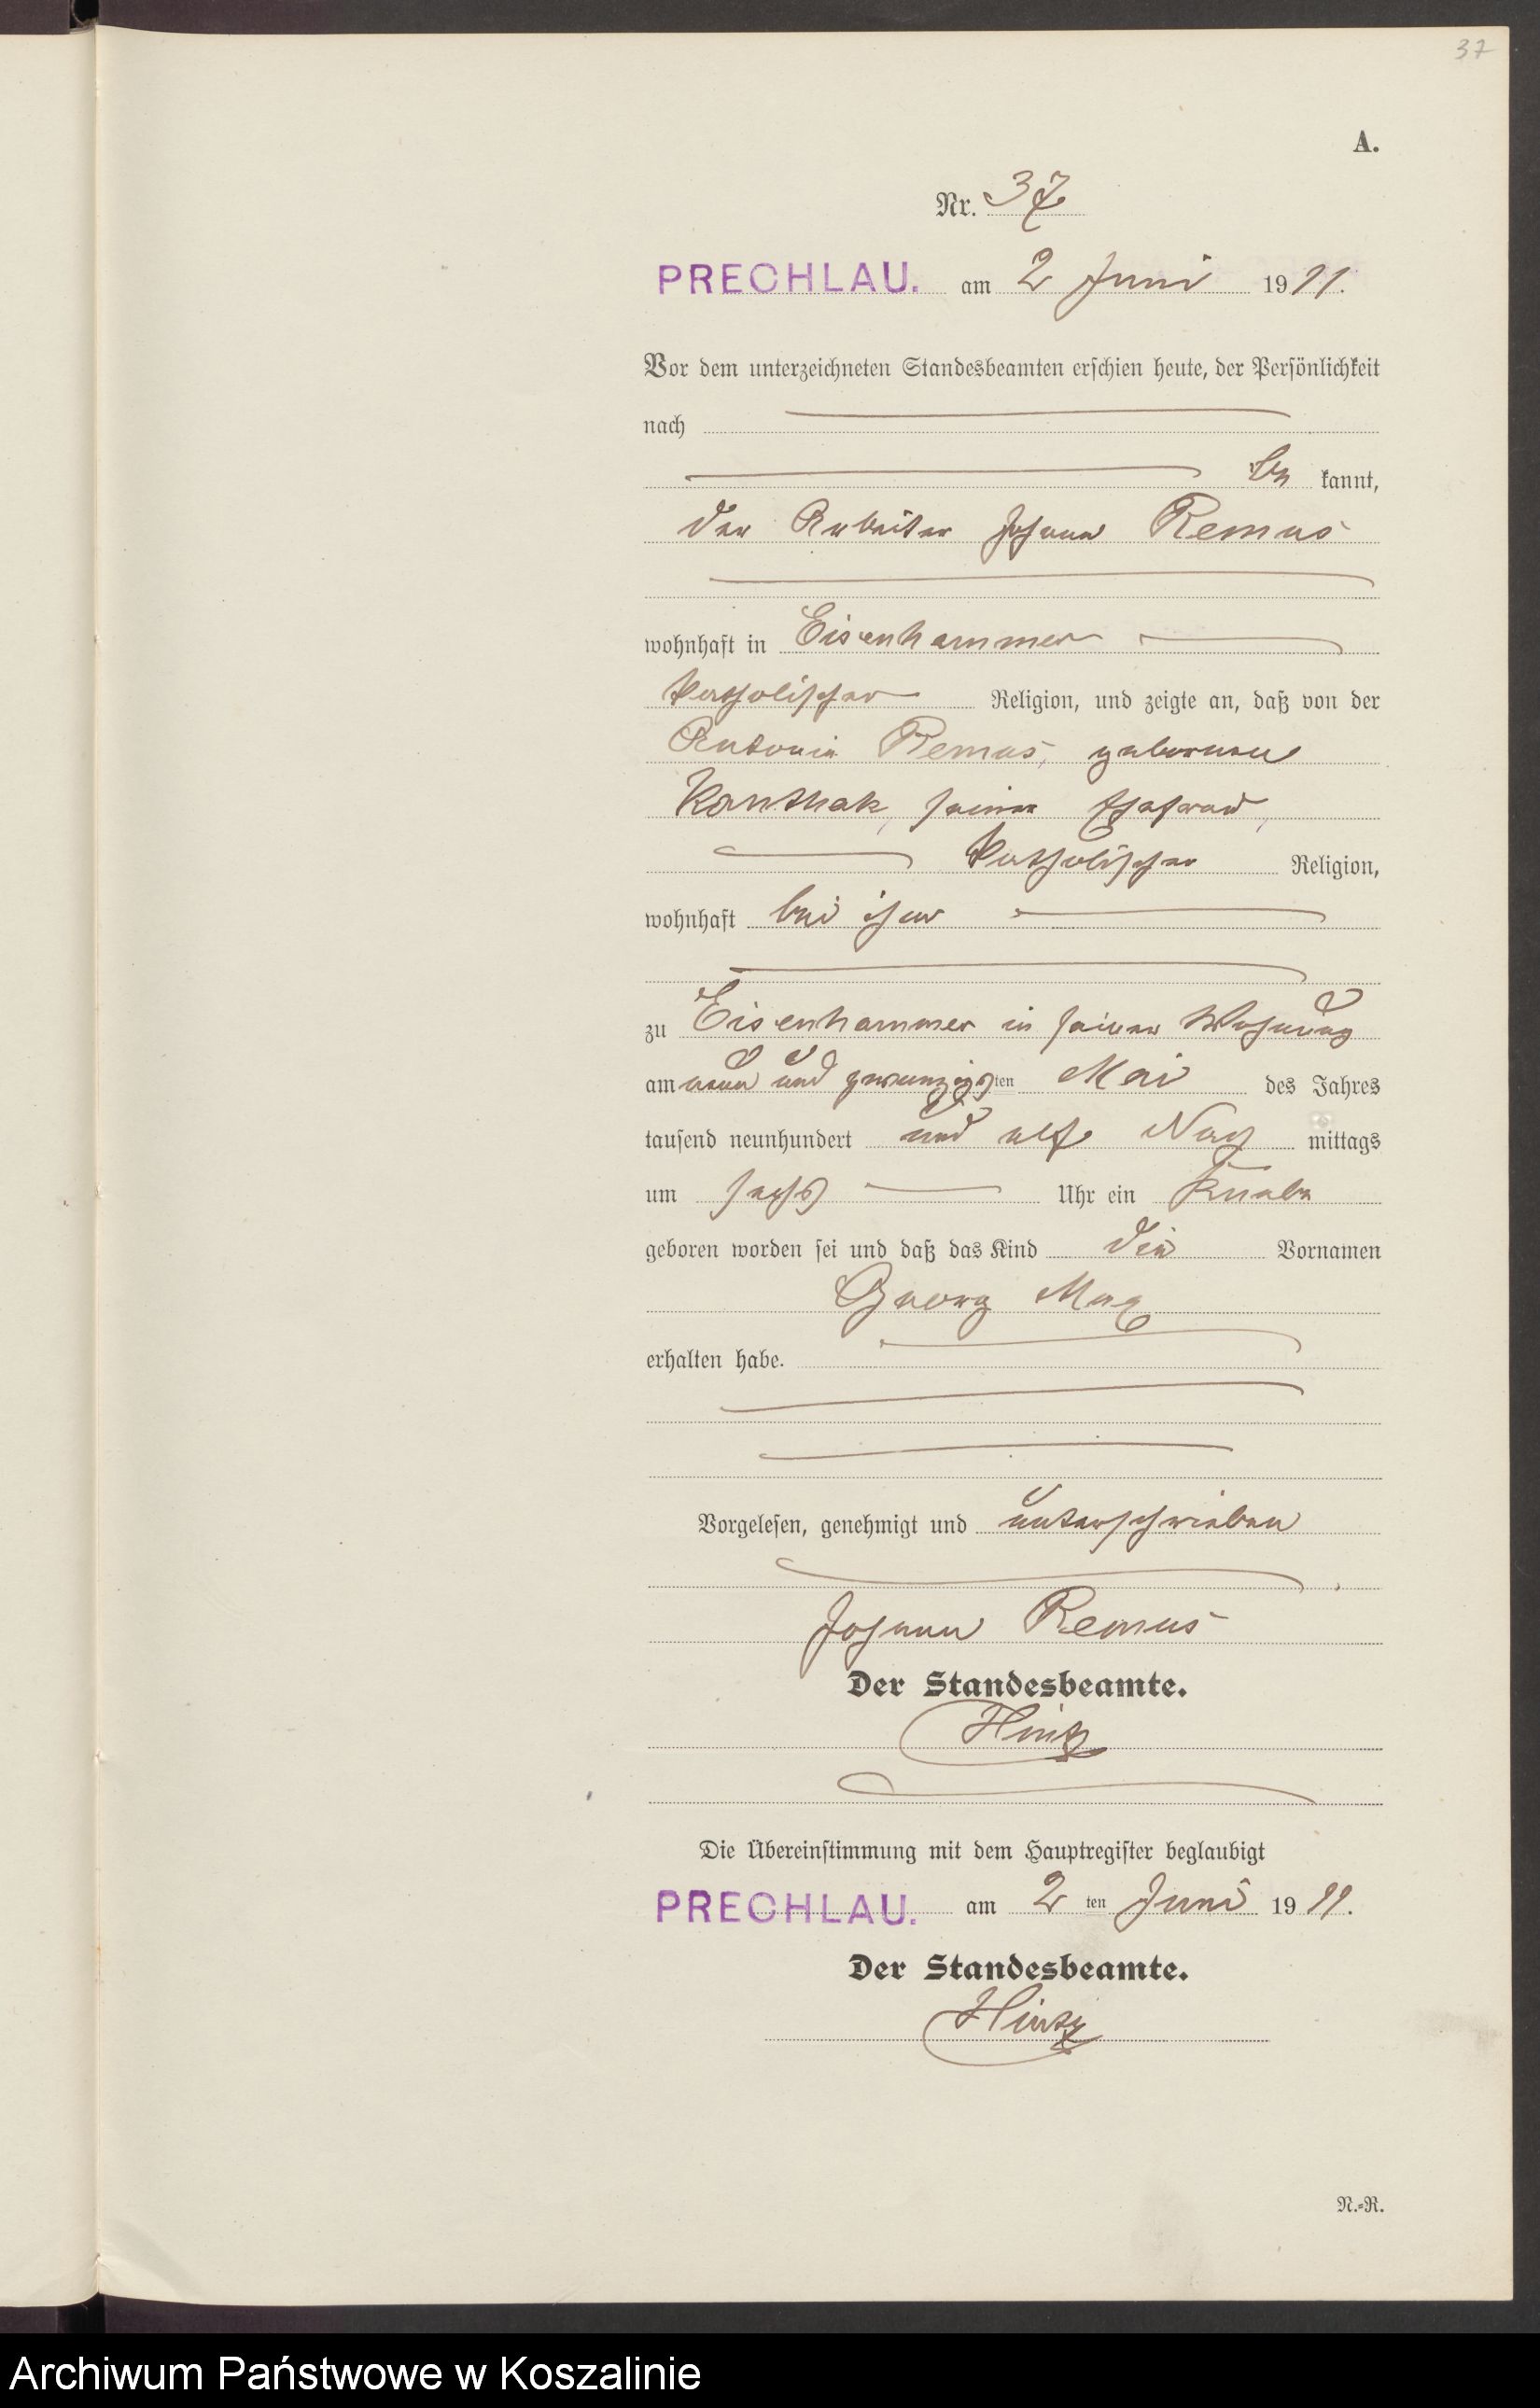 37
A.
Nr. 37
PRECHLAU. am 2 Juni 1911.
Vor dem unterzeichneten Standesbeamten erschien heute, der Persönlichkeit
nach
be kannt,
der Arbeiter Johann Remus
wohnhaft in Eisenhammer
katholischer Religion, und zeigte an, daß von der
Antonia Remus, geborenen
Kanthak, seiner Ehefrau,
katholischer Religion,
wohnhaft bei ihm
zu Eisenhammer in seiner Wohnung
am neun und zwanzigsten Mai des Jahres
tausend neunhundert und elf Nach mittags
um sechs Uhr ein Knabe
geboren worden sei und daß das Kind die Vornamen
Georg Max
erhalten habe.
Vorgelesen, genehmigt und unterschrieben
Johann Remus
Der Standesbeamte.
Hintz
Die Übereinstimmung mit dem Hauptregister beglaubigt
PRECHLAU. am 2 ten Juni 1911.
Der Standesbeamte.
Hintz
N.=R.
Archiwum Państwowe w Koszalinie